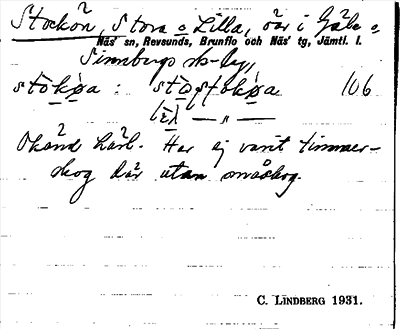 Stockön, Stora o Lilla, öar i Gäle o
Näs sn, Revsunds, Brunflo och Näs' tg, Jämtl. l.
Sinnbergs sk-lag,
stòkøa : stòʃtokøa 106
lìλ — „ —
Okänd härl. Har ej varit timmer-
skog där utan småskog.
C. LINDBERG 1931.